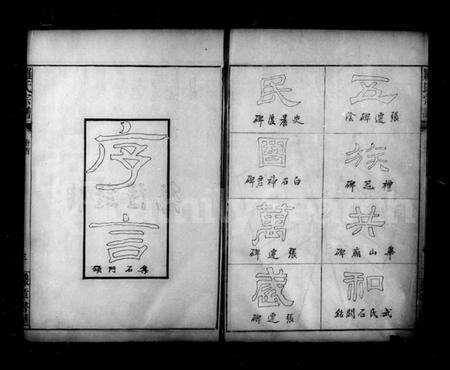 五
張遷碑陰
族
禮器碑
共
華山廟碑
和
武氏石闕銘
民
史晨後碑
國
白石神君碑
萬
張遷碑
歲
張遷碑
序言
石門頌